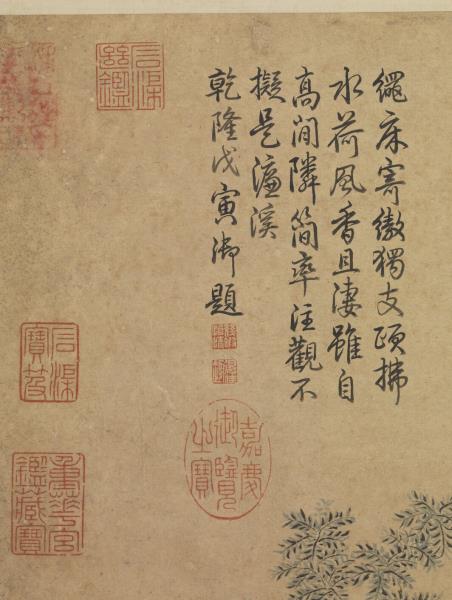 繩床寄傲獨支頤拂
水荷風香且淒雖自
高閒隣簡率注觀不
擬是濂溪
乾隆戊寅御題
嘉慶御覽之寶
石渠繼鑑
石渠寶笈
重華宮鑑藏寶